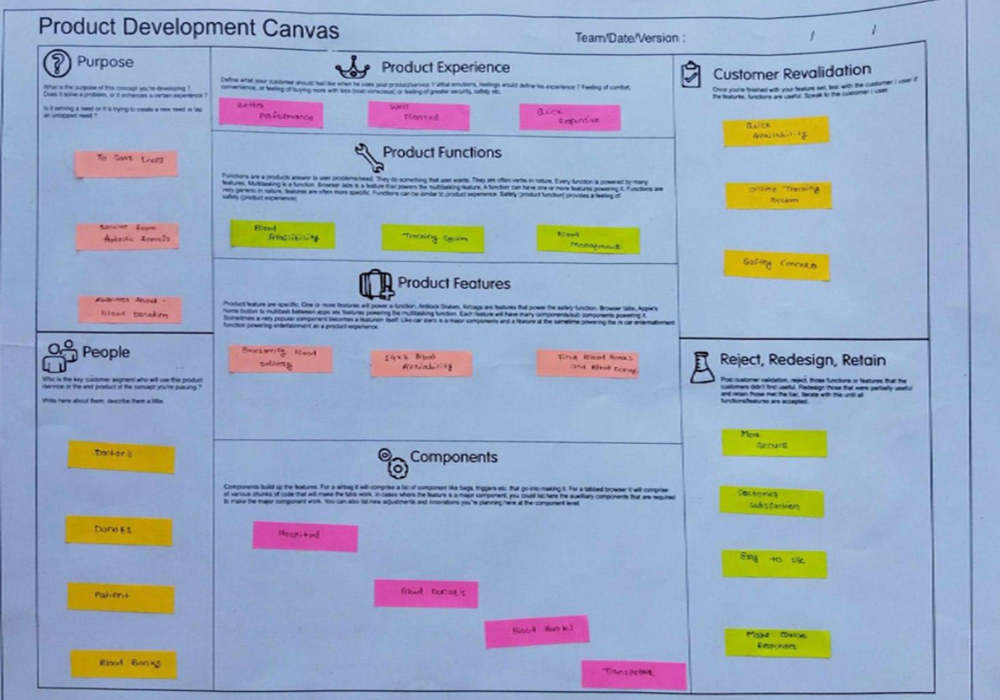 Product Development Canvas
Team/Date/Version : / /
Purpose
What is the purpose of this concept you're developing ?
Does it solve a problem, or it enhances a certain experience ?
Is it serving a need or it is trying to create a new need or tap
an untapped need ?
To Save Lives
Aplastic
Blood Donation
People
Who is the key customer segment who will use this product
/service or the end product of the concept you're pursuing ?
Write here about them, describe them a little.
Doctor's
Patient
Blood Banks
Product Experience
Define what your customer should feel like when he uses your product/service ? What emotions, feelings would define his experience ? Feeling of comfort,
convenience, or feeling of buying more with less (cost conscious), or feeling of greater security, safety etc.
Better
Well
Quick
Product Functions
Functions are a products answer to user problems/need. They do something that user wants. They are often verbs in nature. Every function is powered by many
features. Multitasking is a function. Browser tabs is a feature that powers the multitasking feature. A function can have one or more features powering it. Functions are
very generic in nature, features are often more specific. Functions can be similar to product experience. Safety (product function) provides a feeling of
safety (product experience)
Blood
Tracking System
Blood
Product Features
Product feature are specific. One or more features will power a function. Antilock Brakes, Airbags are features that power the safety function. Browser tabs, Apple's
home button to multitask between apps are features powering the multitasking function. Each feature will have many components/sub components powering it.
Sometimes a very popular component becomes a feature in itself. Like car stero is a major components and a feature at the sametime powering the in car entertainment
function powering entertainment as a product experience
Blood
Delivery
24x7 Blood
Availability
Find Blood Banks
and Blood
Components
Components build up the features. For a airbag it will comprise a list of component like bags, triggers etc. that go into making it. For a tabbed browser it will comprise
of various chunks of code that will make the tabs work. In cases where the feature is a major component, you could list here the auxiliary components that are required
to make the major component work. You can also list new adjustments and innovations you're planning here at the component level.
Hospital
Blood Donor's
Blood Banks
Customer Revalidation
Once you're finished with your feature set, test with the customer / user if
the features, functions are useful. Speak to the customer / user.
Quick
Availability
Online Tracking
System
Safety Concern
Reject, Redesign, Retain
Post customer validation, reject, those functions or features that the
customers didn't find useful. Redesign those that were partially useful
and retain those met the bar. Iterate with this until all
functions/features are accepted.
More
Secure
satisfaction
Easy to use
Make Quick